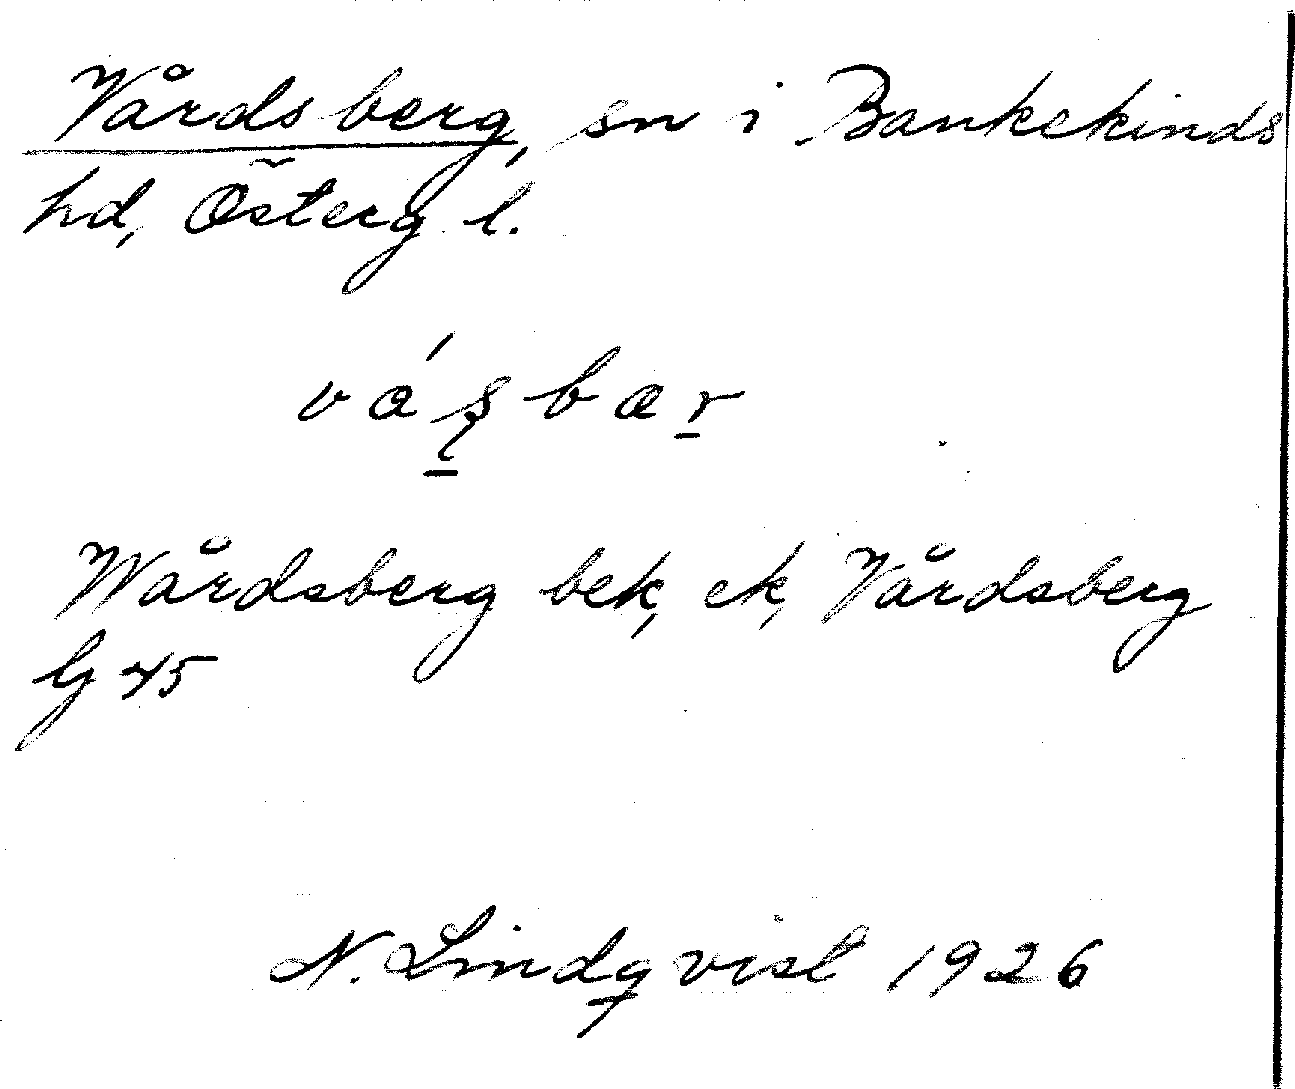 Vårdsberg, sn i Bankekinds
hd, Österg l.
vá̱ʂbær
Wårdsberg bek, ek, Vårdsberg
G 45
N. Lindqvist 1926